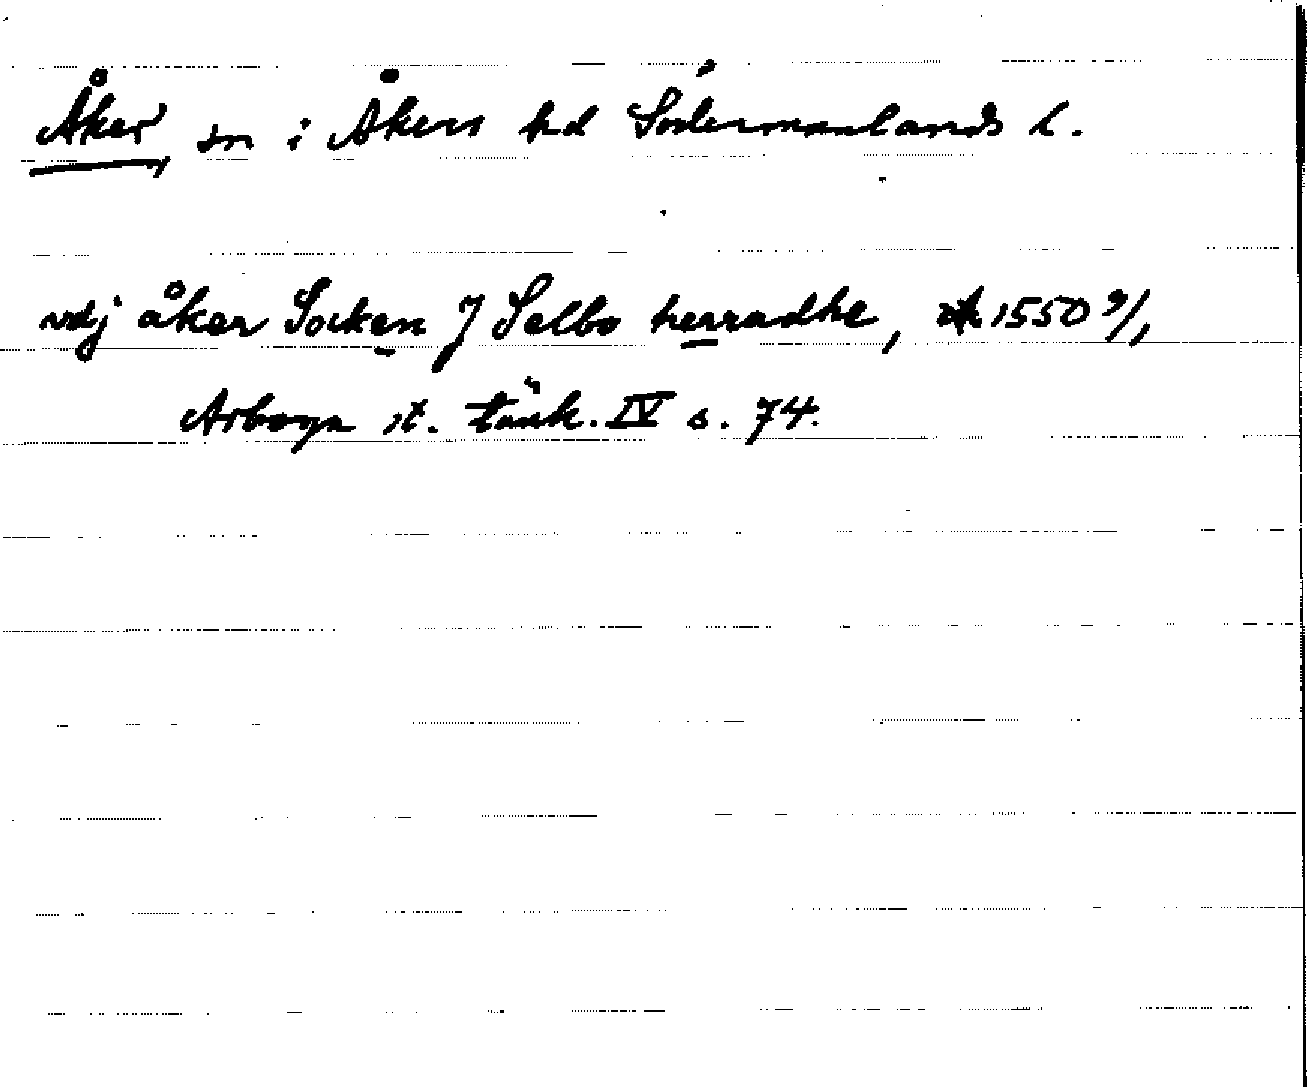 Åker sn i Åkers hd Södermanlands l.
vdj åker Socken J Selbo herradhe, 1550 9/1,
Arboga st. tänk. IV s. 74.